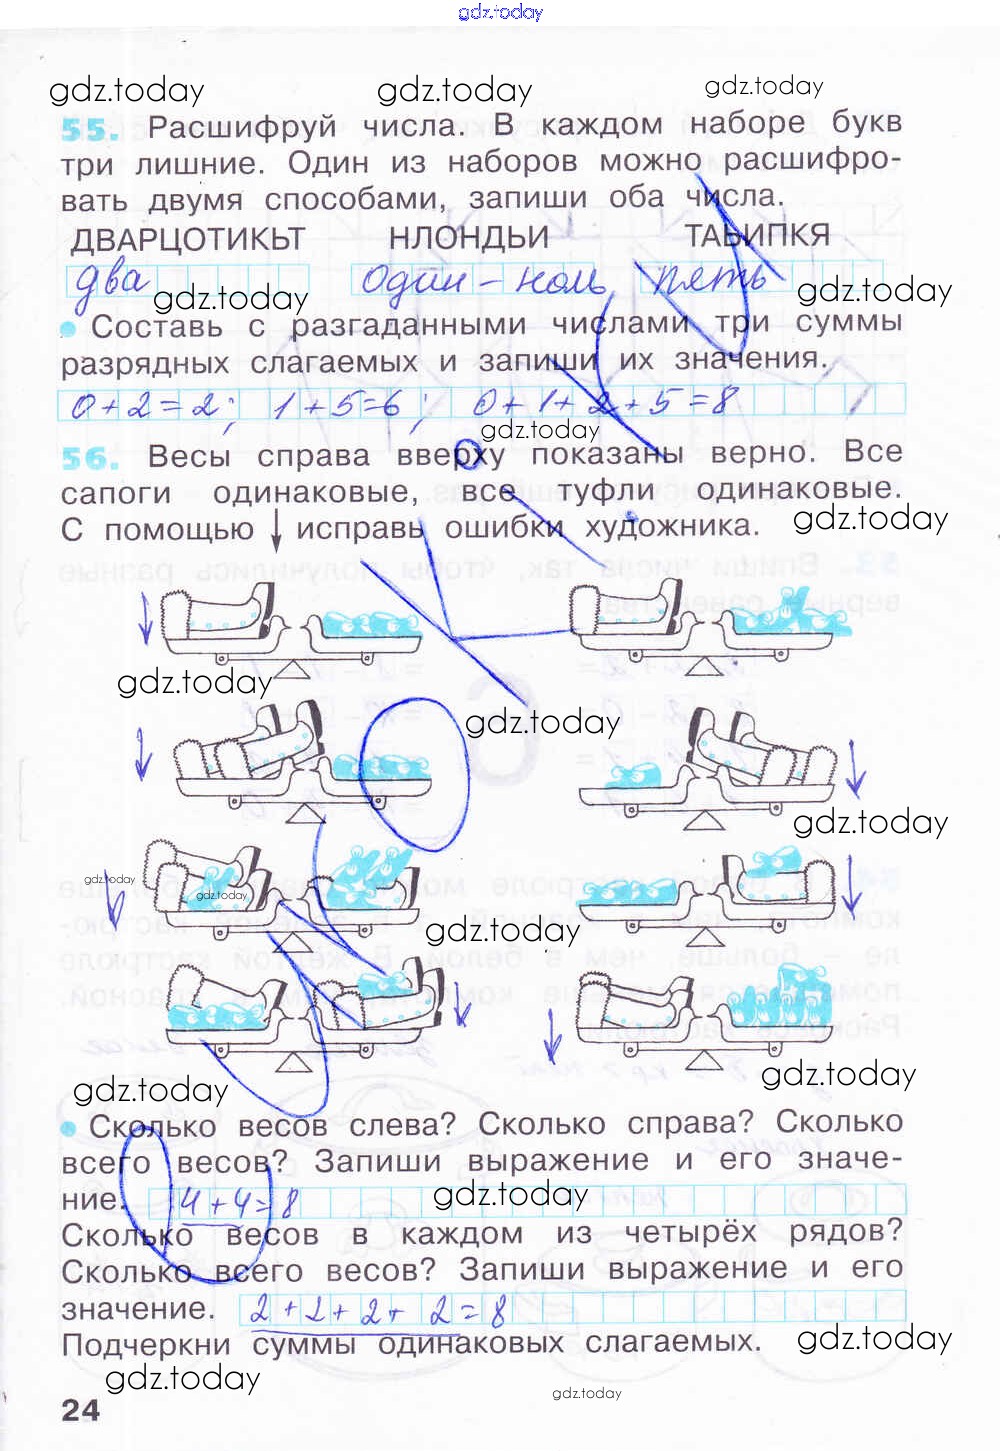 gdz.today
gdz.today gdz.today gdz.today
55. Расшифруй числа. В каждом наборе букв
три лишние. Один из наборов можно расшифро-
вать двумя способами, запиши оба числа.
ДВАРЦОТИКЬТ НЛОНДЬИ ТАЬИПКЯ
два один – ноль пять
gdz.today gdz.today
Составь с разгаданными числами три суммы
разрядных слагаемых и запиши их значения.
0+2=2; 1+5=6; 0+1+2+5=8
gdz.today
56. Весы справа вверху показаны верно. Все
сапоги одинаковые, все туфли одинаковые.
С помощью ↓ исправь ошибки художника.
gdz.today
gdz.today
gdz.today
gdz.today
gdz.today
gdz.today
gdz.today
gdz.today
gdz.today
Сколько весов слева? Сколько справа? Сколько
всего весов? Запиши выражение и его значе-
ние. 4+4=8
gdz.today
Сколько весов в каждом из четырёх рядов?
Сколько всего весов? Запиши выражение и его
значение. 2+2+2+2=8
Подчеркни суммы одинаковых слагаемых.
gdz.today
gdz.today
gdz.today
24